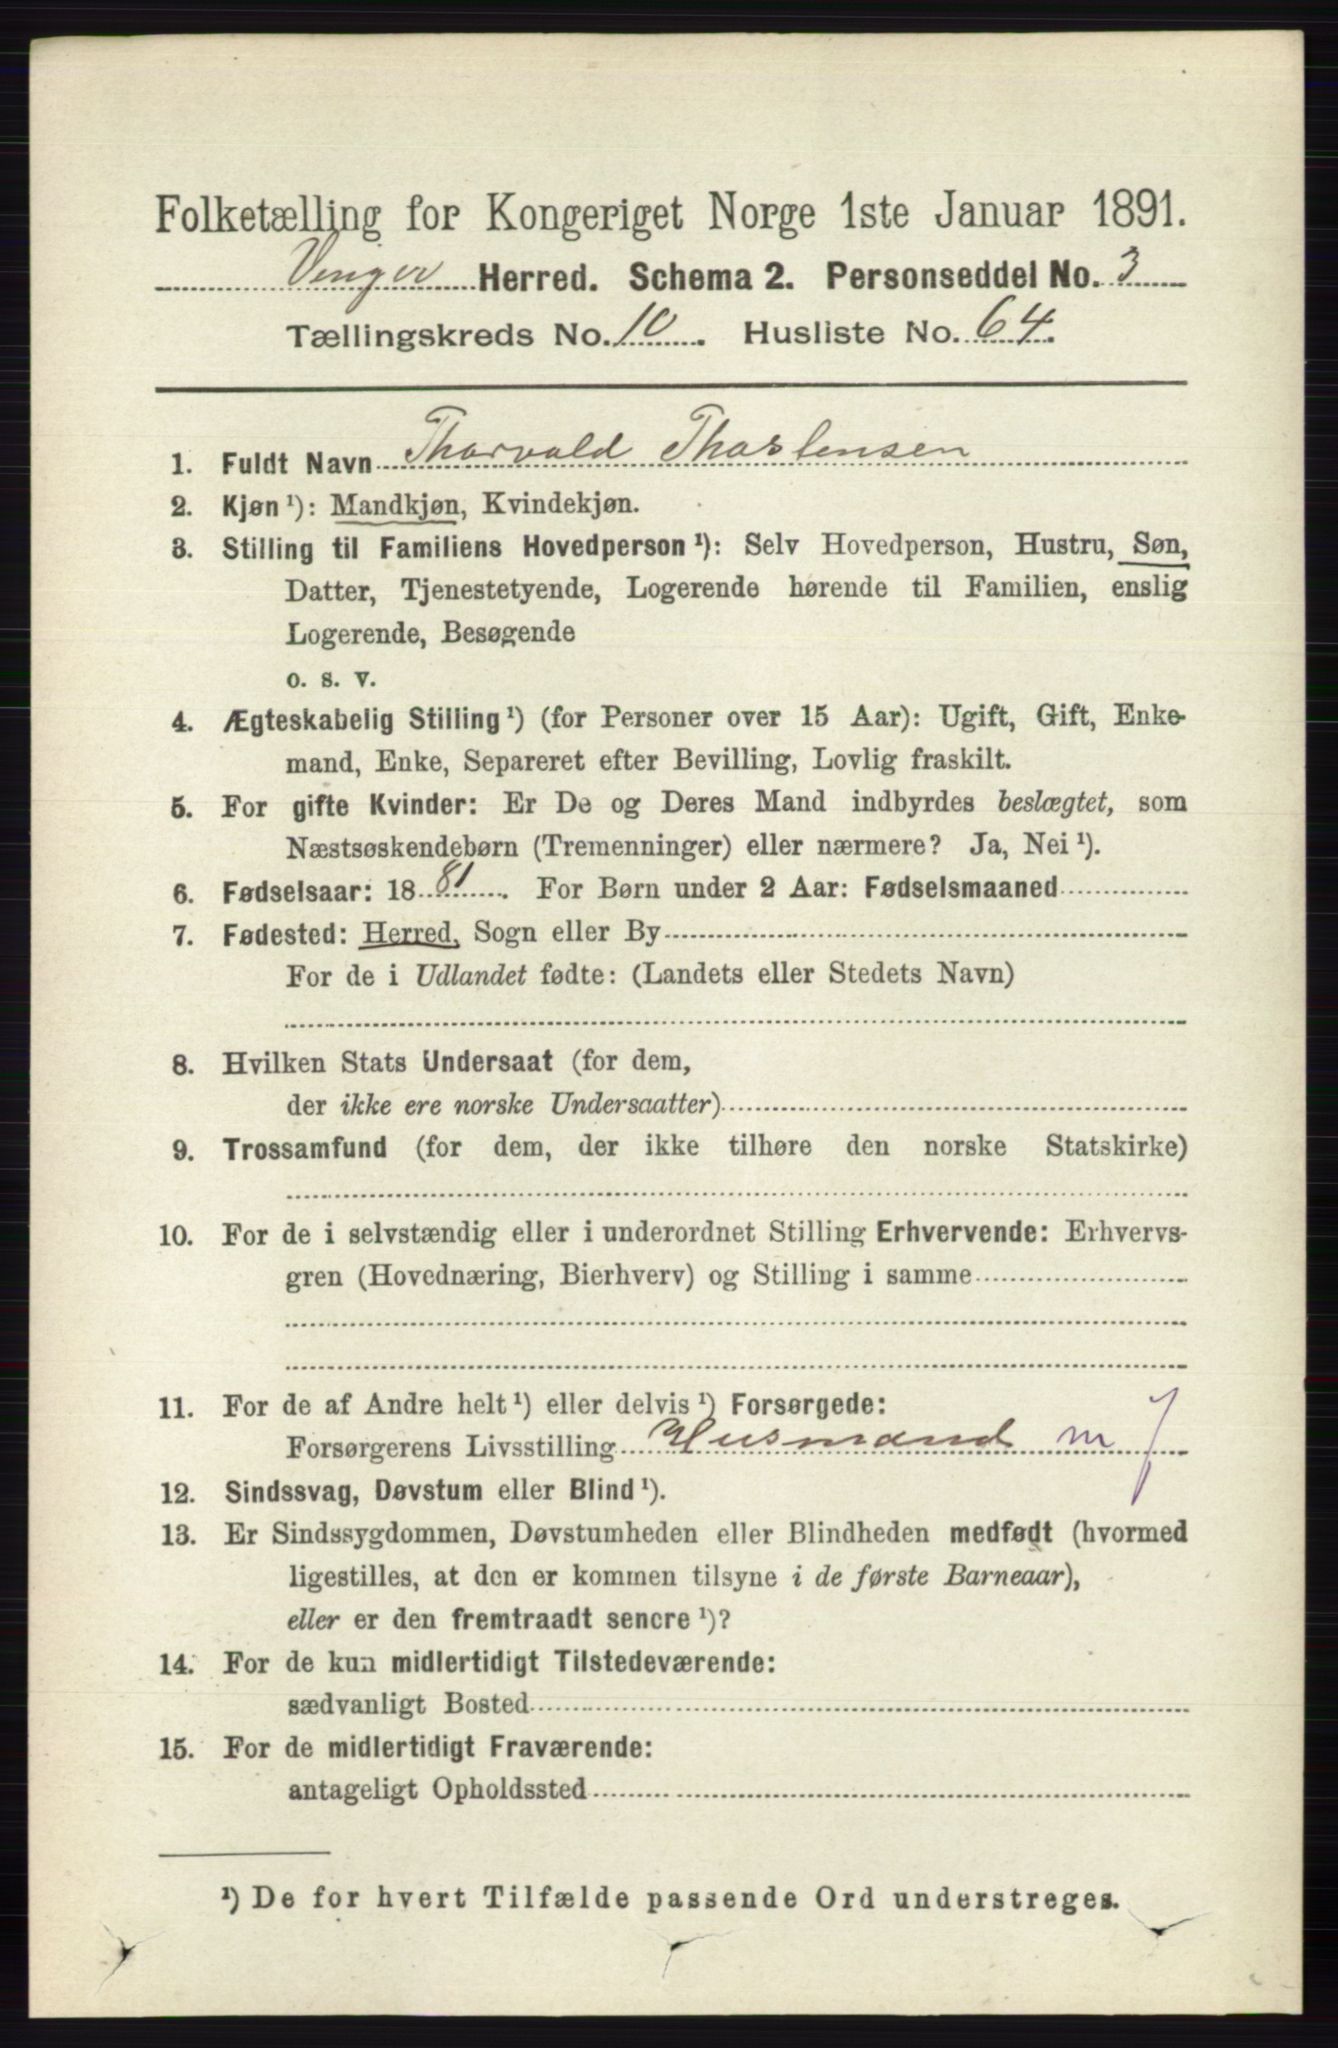 Folketælling for Kongeriget Norge 1ste Januar 1891.
Vinger Herred. Schema 2. Personseddel No. 3
Tællingskreds No. 10. Husliste No. 64.
1. Fuldt Navn Thorvald Thorstensen
2. Kjøn ¹): Mandkjøn, Kvindekjøn.
3. Stilling til Familiens Hovedperson ¹): Selv Hovedperson, Hustru, Søn,
Datter, Tjenestetyende, Logerende hørende til Familien, enslig
Logerende, Besøgende
o. s. v.
4. Ægteskabelig Stilling ¹) (for Personer over 15 Aar): Ugift, Gift, Enke-
mand, Enke, Separeret efter Bevilling, Lovlig fraskilt.
5. For gifte Kvinder: Er De og Deres Mand indbyrdes beslægtet, som
Næstsøskendebørn (Tremenninger) eller nærmere? Ja, Nei ¹).
6. Fødselsaar: 1881. For Børn under 2 Aar: Fødselsmaaned
7. Fødested: Herred, Sogn eller By
For de i Udlandet fødte: (Landets eller Stedets Navn)
8. Hvilken Stats Undersaat (for dem,
der ikke ere norske Undersaatter)
9. Trossamfund (for dem, der ikke tilhøre den norske Statskirke)
10. For de i selvstændig eller i underordnet Stilling Erhvervende: Erhvervs-
gren (Hovednæring, Bierhverv) og Stilling i samme
11. For de af Andre helt ¹) eller delvis ¹) Forsørgede:
Forsørgerens Livsstilling Husmand m J
12. Sindssvag, Døvstum eller Blind ¹).
13. Er Sindssygdommen, Døvstumheden eller Blindheden medfødt (hvormed
ligestilles, at den er kommen tilsyne i de første Barneaar),
eller er den fremtraadt senere ¹)?
14. For de kun midlertidigt Tilstedeværende:
sædvanligt Bosted
15. For de midlertidigt Fraværende:
antageligt Opholdssted
¹) De for hvert Tilfælde passende Ord understreges.